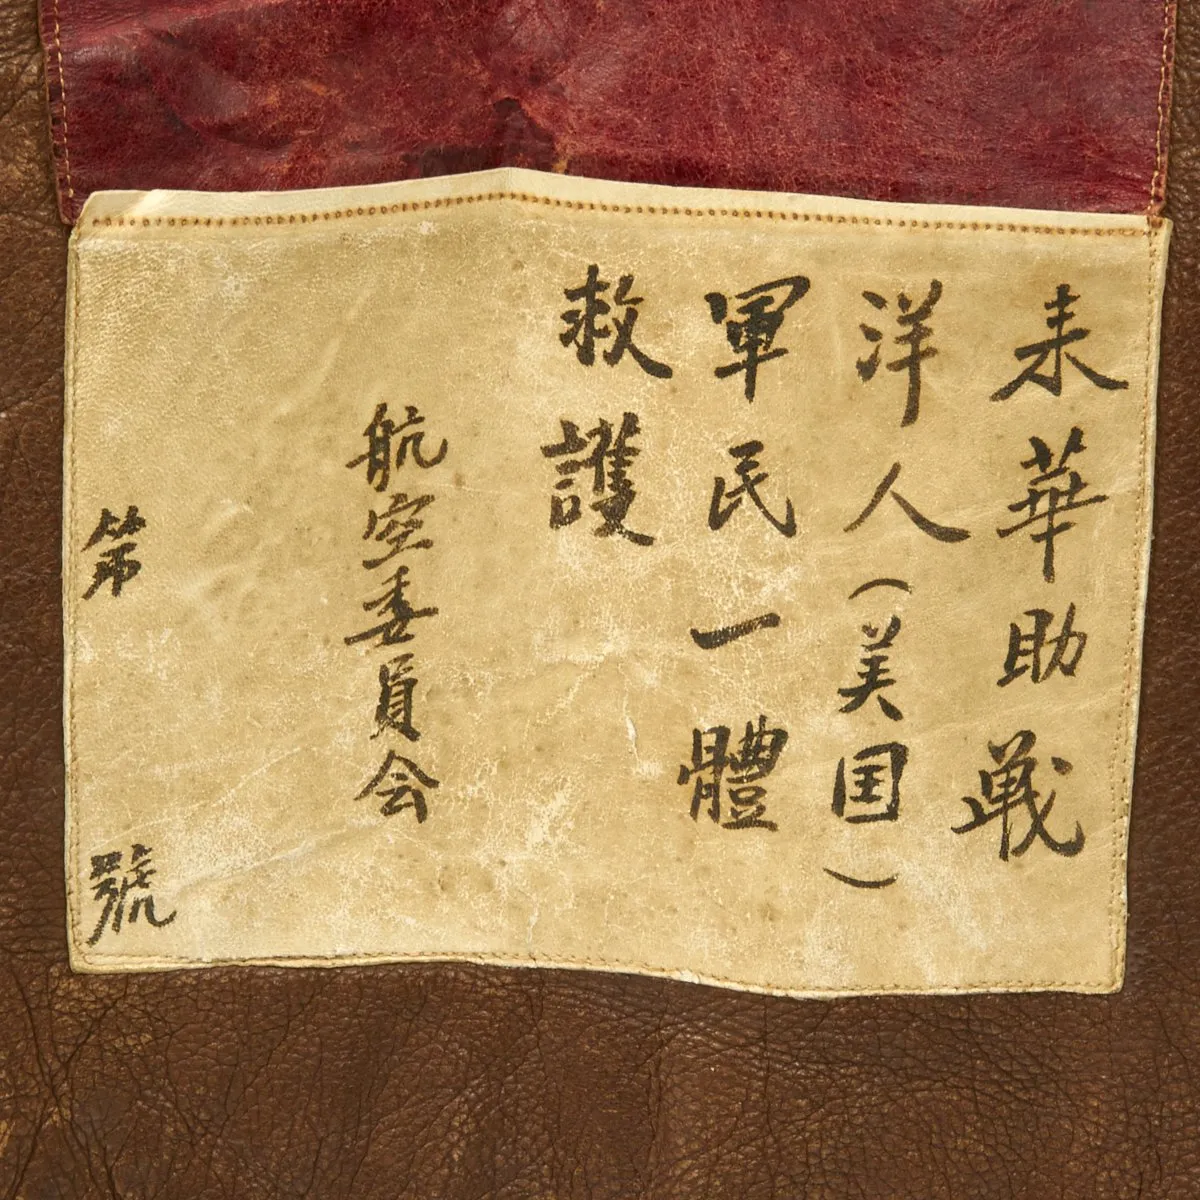 来華助戰
洋人(美国)
軍民一體
救護
航空委員会
第 號